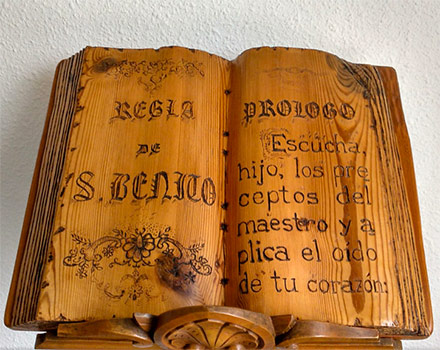 REGLA
DE
S. BENITO
PROLOGO
Escucha,
hijo, los pre
ceptos del
maestro y a
plica el oído
de tu corazón: